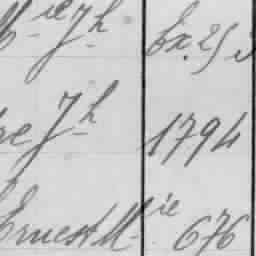 M.ie Jh Ex. 25
re Jh 1794
Ernest M.ie 676